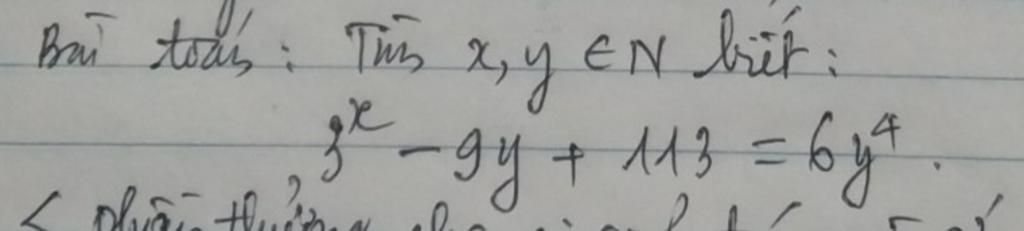 Bài toán: Tìm x, y ∈ N biết:
3^x - 9y + 113 = 6y^4.
< phần thưởng